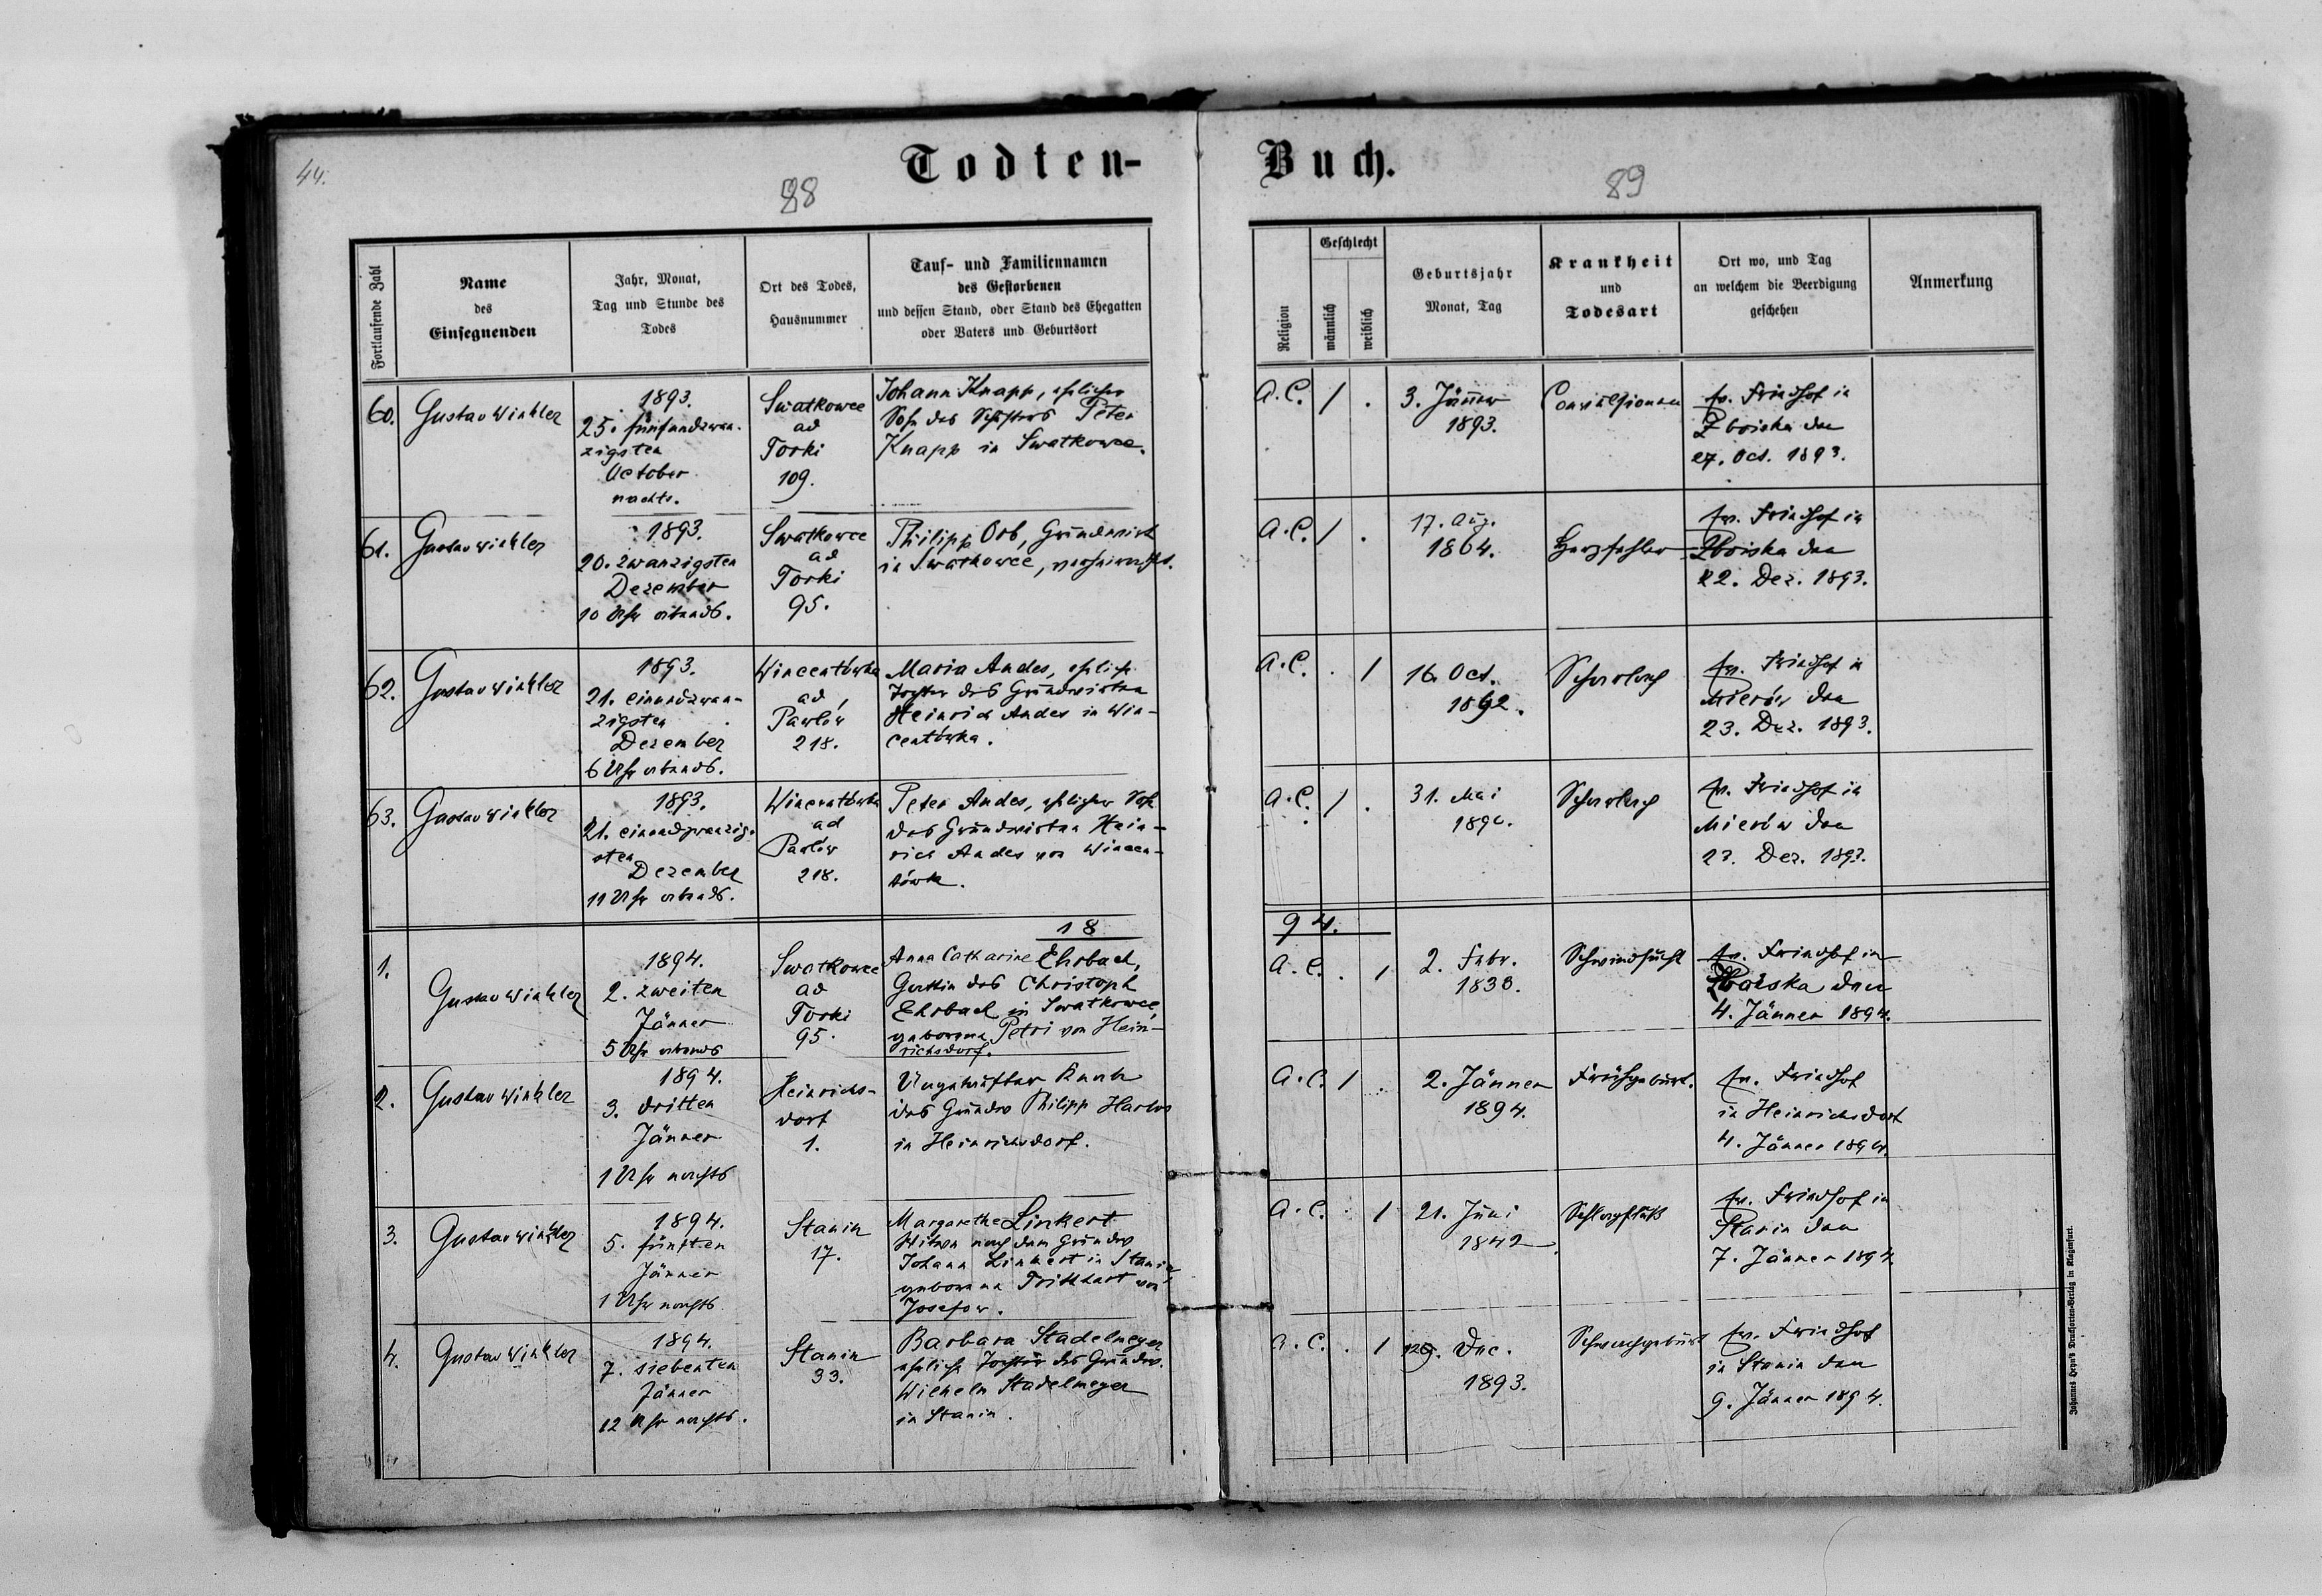 44.
Todten-
88
Fortlaufende Zahl
Name
des
Einsegnenden
Jahr, Monat,
Tag und Stunde des
Todes
Ort des Todes,
Hausnummer
Tauf- und Familiennamen
des Gestorbenen
und dessen Stand, oder Stand des Ehegatten
oder Vaters und Geburtsort
60.
Gustav Winkler
1893.
25. fünfundzwan-
zigsten
October
nachts.
Swatkowce
ad
Torki
109.
Johann Knapp, ehlicher
Sohn des Peter
Knapp in Swatkowce.
61.
Gustav Winkler
1893.
20. zwanzigsten
Dezember
10 Uhr abends.
Swatkowce
ad
Torki
95.
Philipp Orb, Grundwirth
in Swatkowce, verheirathet.
62.
Gustav Winkler
1893.
21. einundzwan-
zigsten
Dezember
6 Uhr abends.
Wincentówka
ad
Pawlów
218.
Maria Andes, ehliche
Tochter des Grundwirten
Heinrich Andes in Win-
centówka.
63.
Gustav Winkler
1893.
21. einundzwanzig-
sten
Dezember
11 Uhr abends.
Wincentówka
ad
Pawlów
218.
Peter Andes, ehlicher Sohn
des Grundwirten Hein-
rich Andes von Wincen-
tówka.
18
1.
Gustav Winkler
1894.
2. zweiten
Jänner
5 Uhr abends
Swatkowce
ad
Torki
95.
Anna Catharine Ehrbach,
Gattin des Christoph
Ehrbach in Swatkowce,
geborene Petri von Hein-
richsdorf.
2.
Gustav Winkler
1894.
3. dritten
Jänner
1 Uhr nachts
Heinrichs-
dorf
1.
Ungetaufter Knabe
des Grundw. Philipp
in Heinrichsdorf.
3.
Gustav Winkler
1894.
5. fünften
Jänner
1 Uhr nachts
Stanin
17.
Margarethe Linkert
Witwe nach dem Grundw.
Johann Linkert in Stanin,
geborene von
Josefow.
4.
Gustav Winkler
1894.
7. siebenten
Jänner
12 Uhr nachts.
Stanin
33.
Barbara Stadelmeyer
ehliche Tochter des Grundw.
Wilhelm Stadelmeyer
in Stanin.
Buch.
89
Religion
Geschlecht
männlich
weiblich
Geburtsjahr
Monat, Tag
Krankheit
und
Todesart
Ort wo, und Tag
an welchem die Beerdigung
geschehen
Anmerkung
A. C. / .
3. Jänner
1893.
Convulsionen
ev. Friedhof in
Zboiska den
27. Oct. 1893.
A. C. / .
17. Aug.
1864.
Herzfehler
ev. Friedhof in
Zboiska den
22. Dez. 1893.
A. C. . /
16. Oct.
1892.
Scharlach
ev. Friedhof in
Mierów den
23. Dez. 1893.
A. C. / .
31. Mai
Scharlach
ev. Friedhof in
Mierów den
23. Dez. 1893.
94.
A. C. . /
2. Febr.
Schwindsucht
ev. Friedhof in
Zboiska den
4. Jänner 1894.
A. C. / .
2. Jänner
1894.
Frühgeburt.
ev. Friedhof
in Heinrichsdorf
4. Jänner 1894.
A. C. . /
21. Juni
1842.
Schlagfluß
ev. Friedhof in
Stanin den
7. Jänner 1894.
A. C. . /
Dec.
1893.
Schwachgeburt
ev. Friedhof
in Stanin den
9. Jänner 1894.
Johannes Heyn's Drucksorten-Verlag in Klagenfurt.